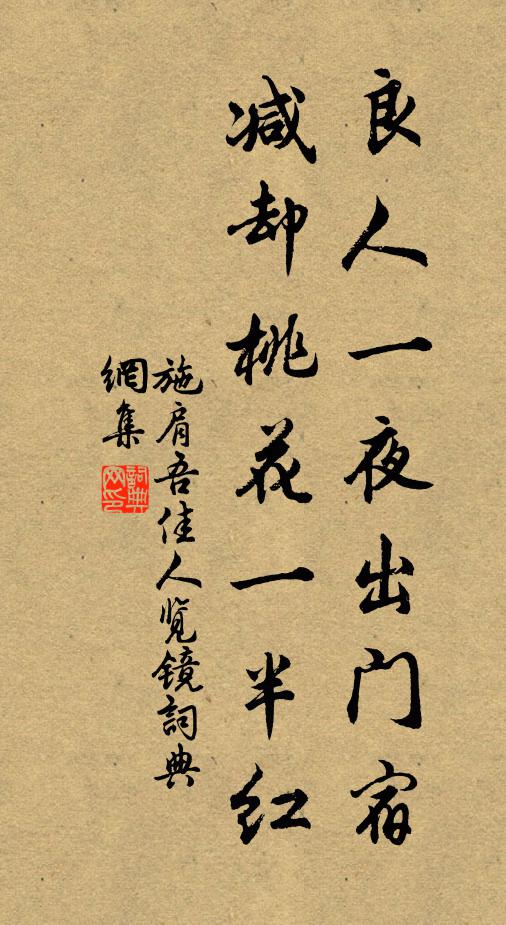 良人一夜出门宿
减却桃花一半红
施肩吾佳人览镜詞典
網集
詞典
网印